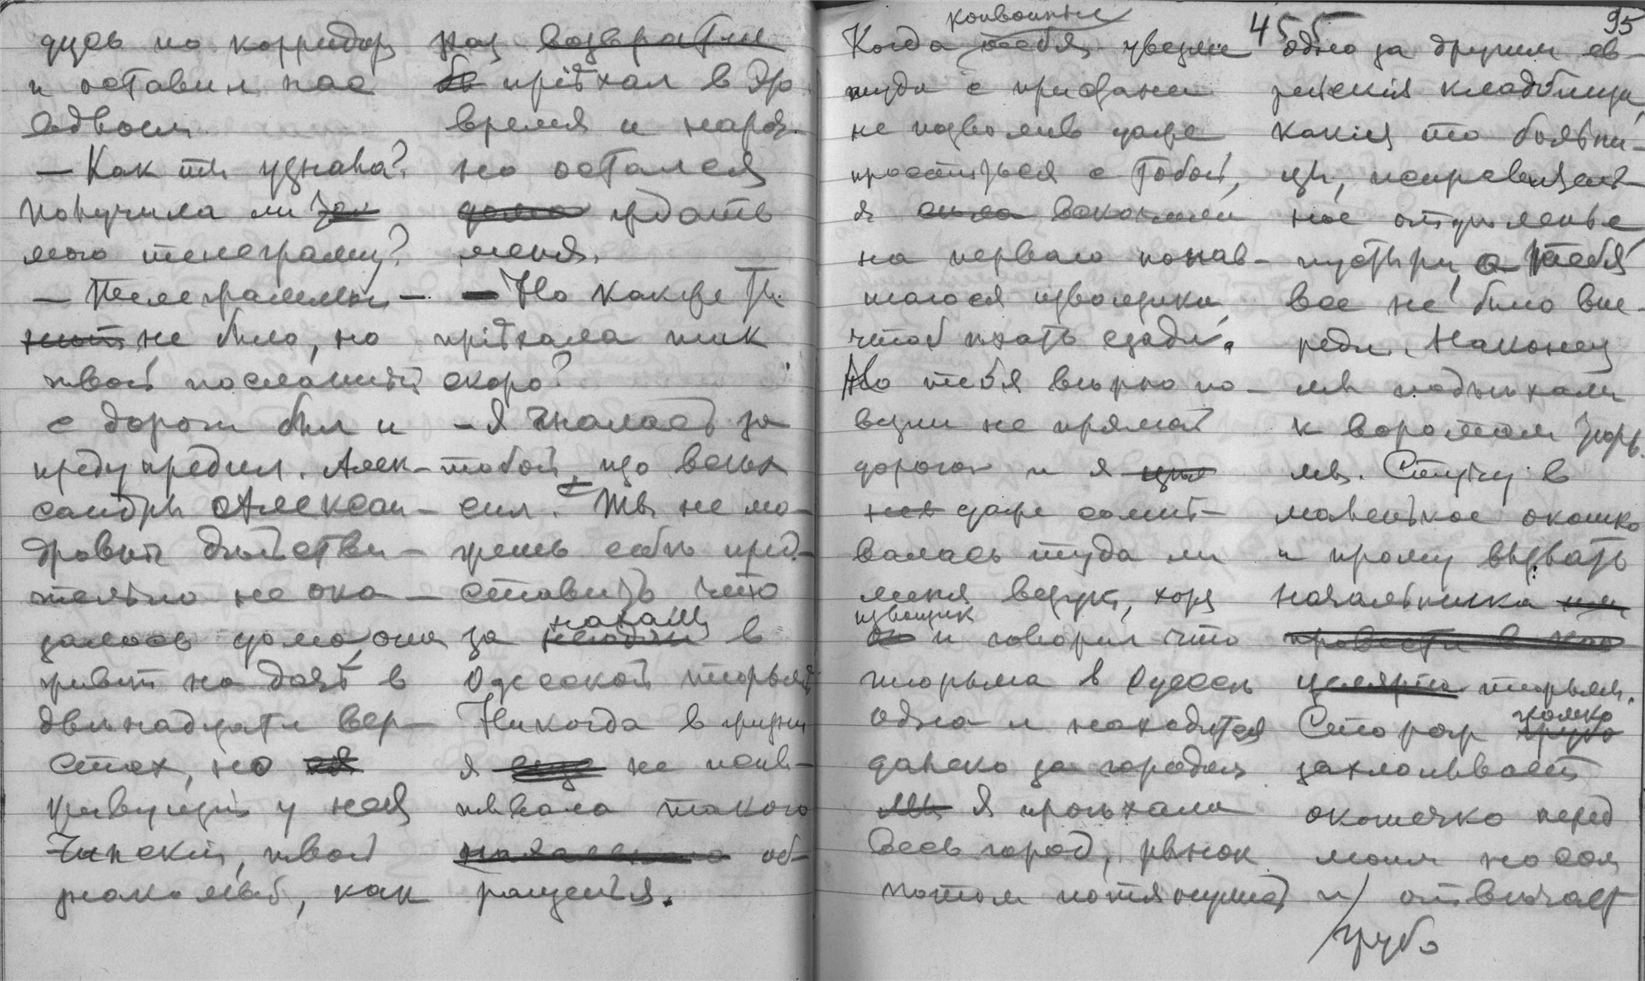 дусь по корридору
и оставил нас
вдвоем
— Как ты узнала?
получила ли
мою телеграму?
— Телеграммы —
не было, но
твой посланный
с дороги был и
предупредил. Алек-
сандры Алексан-
дровны действи-
тельно не ока-
залось дома, она
живет на даче в
двенадцати вер-
стах, но
живущий у нея
Чинский, твой
знакомый, как
раз возвратил
приехал в это
время и наро-
но остался
ждать
меня.
— Но как же ты
приехала так
скоро?
— Я гналась за
тобой, что было
сил. Ты не мо-
жешь себе пред-
ставить что
за нахалы в
Одесской тюрьме
Никогда в жизни
я еще не испы-
тывала такого
об-
ращенья.
95
455
конвойные
Когда тебя увезли
туда с пристани
не позволив даже
проститься с тобой,
я вскочила
на перваго попав-
шагося извощика,
чтоб ехать сзади.
Но тебя верно по-
везли не прямой
дорогой и я
даже сомне-
валась туда ли
меня везут, хотя
извощик
и говорил что
тюрьма в Одессе
одна и находится
далеко за городом
Мы Я проехали
Весь город, рынок
потом потянулись
одно за другим ев-
рейския кладбища,
какия то больни-
цы, исправитель-
ное отделенье
пустыри, а тебя
все не было впе-
реди. Наконец
мы подъехали
к воротам тюрь-
мы. Стучу в
маленькое окошко
и прошу вызвать
начальника или
провести в кан
целярию тюрьмы.
Сторож только
грубо
захлопывает
окошечко перед
моим носом
и отвечает
грубо